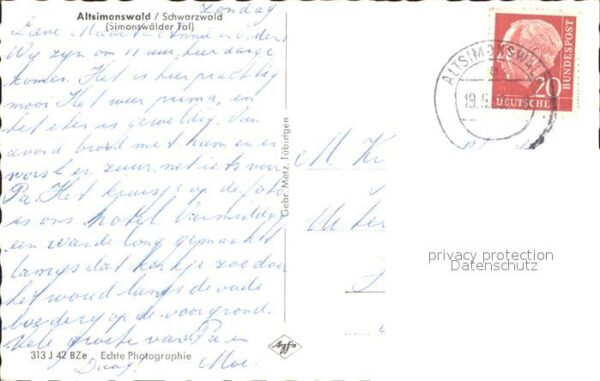 Altsimonswald / Schwarzwald
(Simonswälder Tal)
Zondag
Lieve
Wij zijn om 11 uur hier aange
komen. Het is hier prachtig
mooi Het weer prima, en
het eten is geweldig. Van
avond brood met ham en
worst en zuur net iets voor
Pa. Het kruisje op de foto
is ons hotel Vanmiddag
een wandeling gemaakt
langs dat kerkje zoo door
het woud langs de oude
boerderij op de voorgrond.
Vele groeten van Pa en
Daag! Moe.
313 J 42 BZe Echte Photographie
Agfa
Gebr. Metz, Tübingen
ALTSIMONSWALD
a
19.5.
20
DEUTSCHE
BUNDESPOST
M
privacy protection
Datenschutz